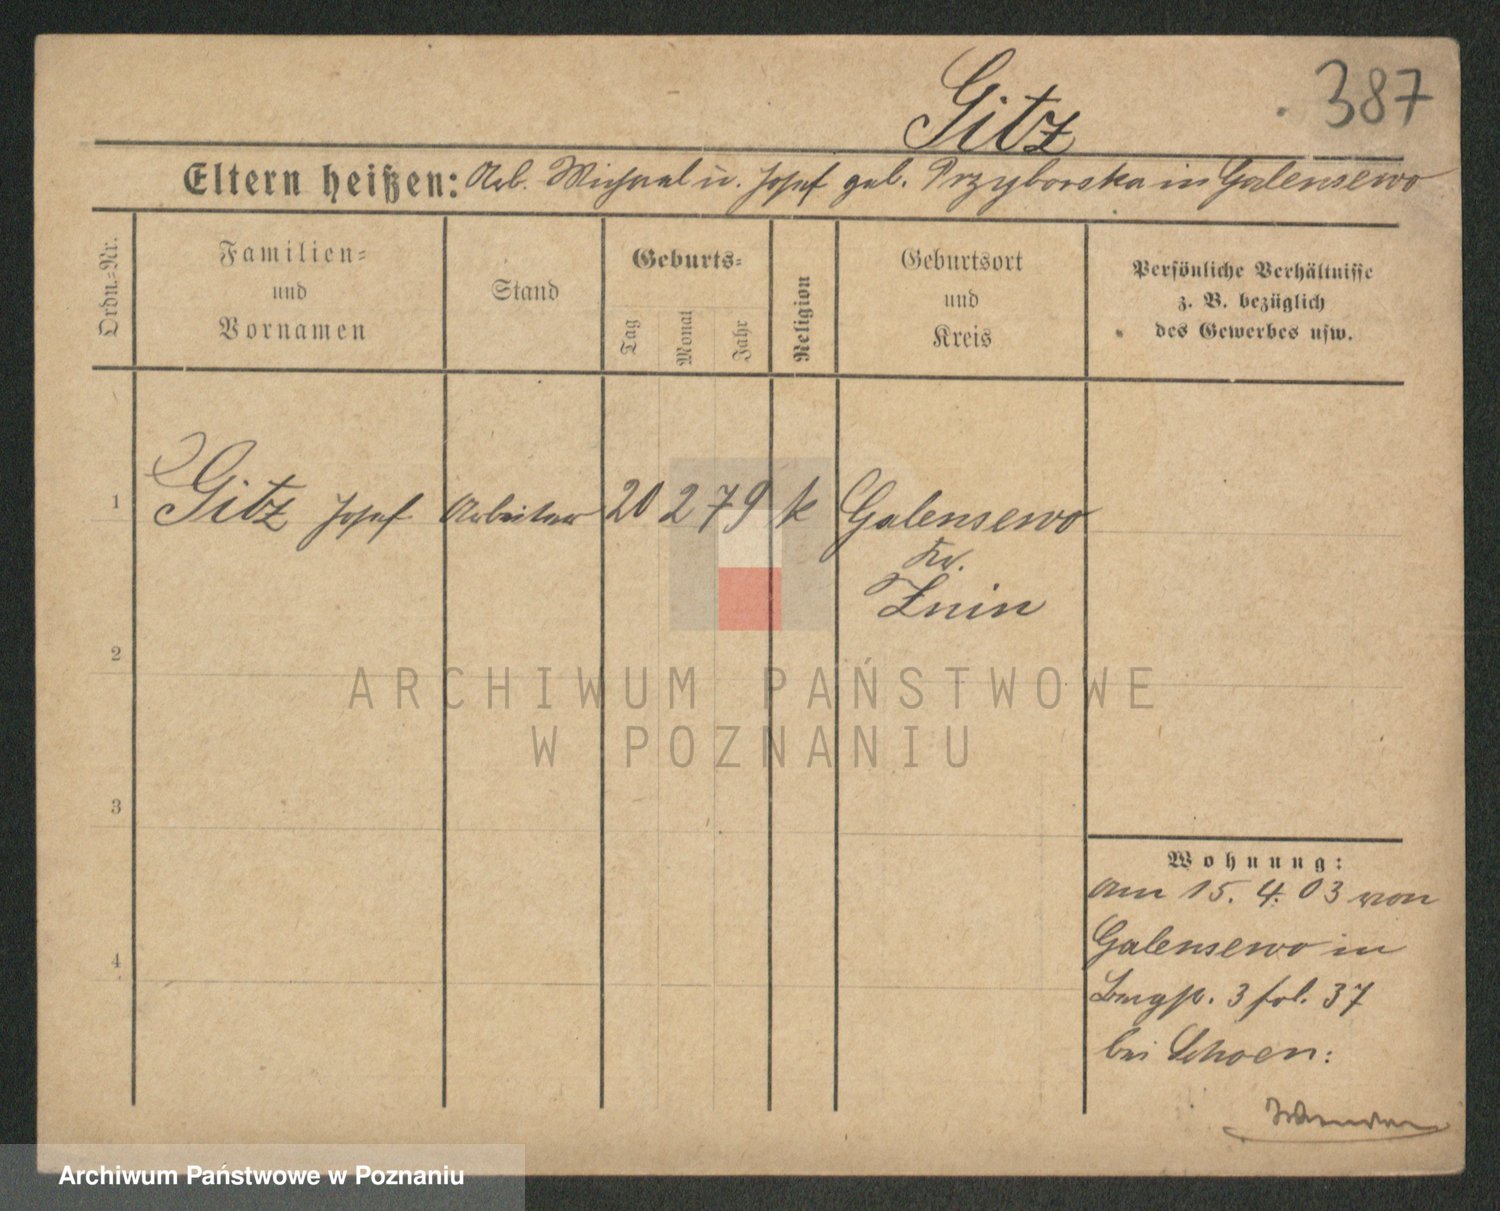 Gitz
387
Eltern heißen: Arb. Michael u. Josef geb. Przyborska in Galensewo
Ordn.-Nr.
Familien-
und
Vornamen
Stand
Geburts-
Tag
Monat
Jahr
Religion
Geburtsort
und
Kreis
Persönliche Verhältnisse
z. B. bezüglich
des Gewerbes usw.
1
Gitz Josef Arbeiter 20 2 79 k Galensewo
Kr.
Znin
2
ARCHIWUM PAŃSTWOWE
W POZNANIU
3
Wohnung:
am 15. 4. 03 von
Galensewo in
4
3 fol. 37
bei Schoen:
Archiwum Państwowe w Poznaniu